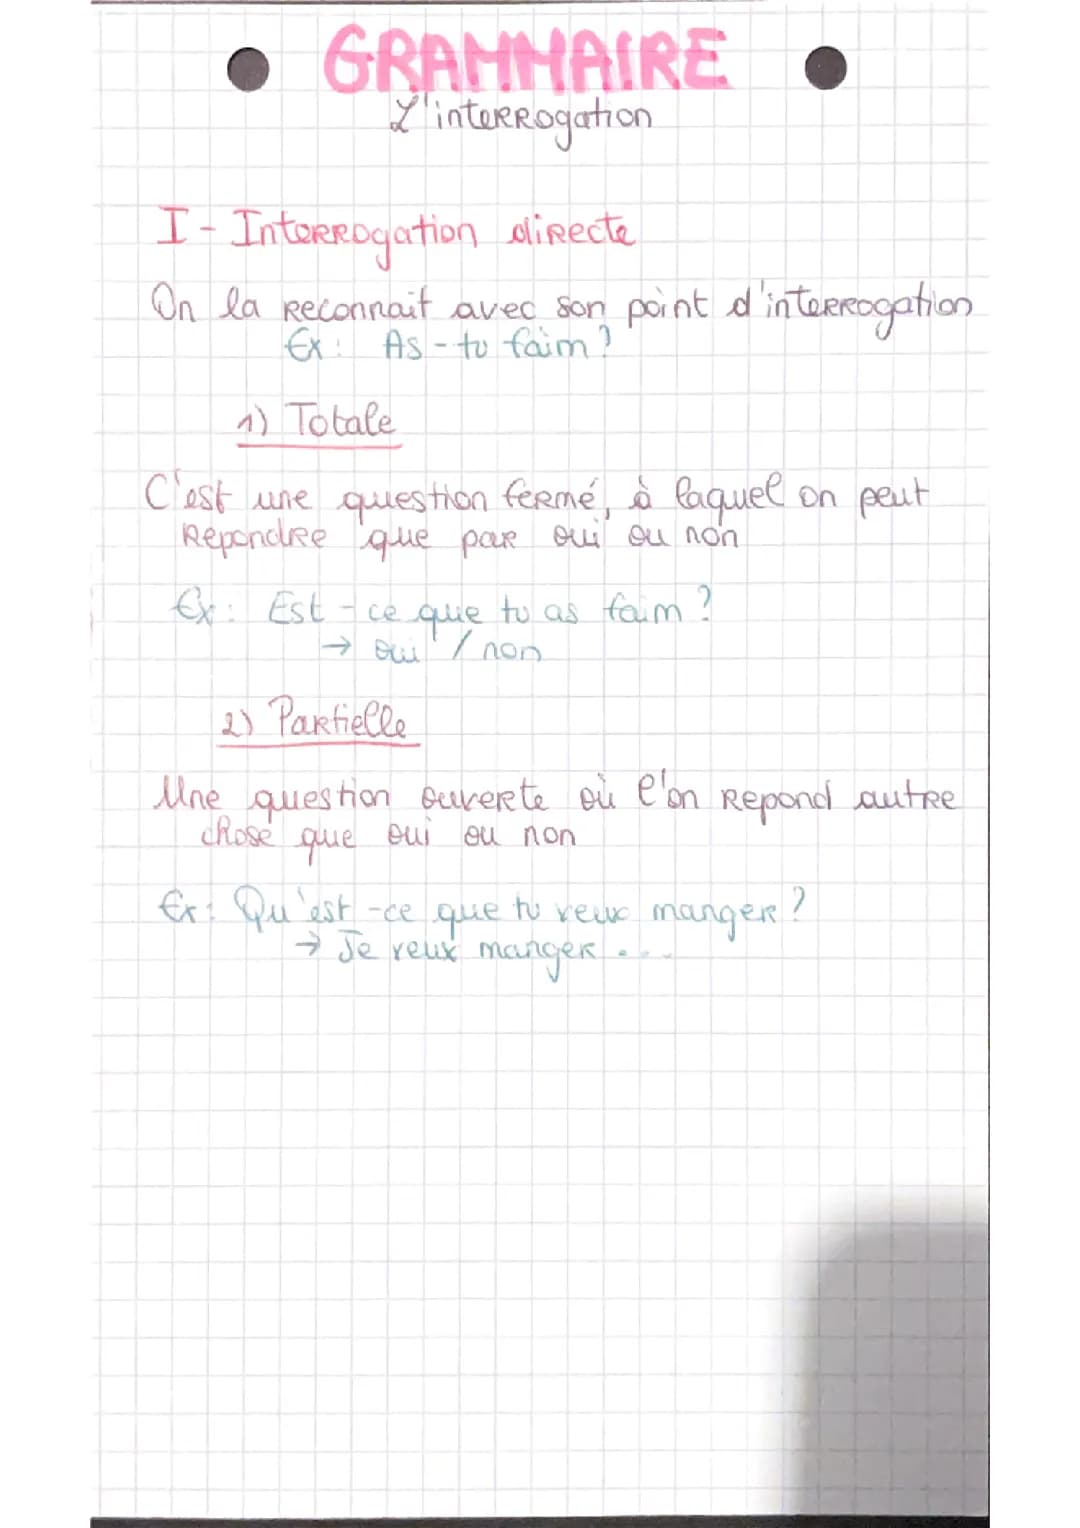 GRAMMAIRE
L'interrogation
I - Interrogation directe
On la reconnait avec son point d'interrogation
Ex : As-tu faim ?
1) Totale
C'est une question fermé, à laquel on peut
repondre que par oui ou non
Ex : Est-ce que tu as faim ?
→ oui / non
2) Partielle
Une question ouverte où l'on repond autre
chose que oui ou non
Ex : Qu'est-ce que tu veux manger ?
→ Je veux manger ...